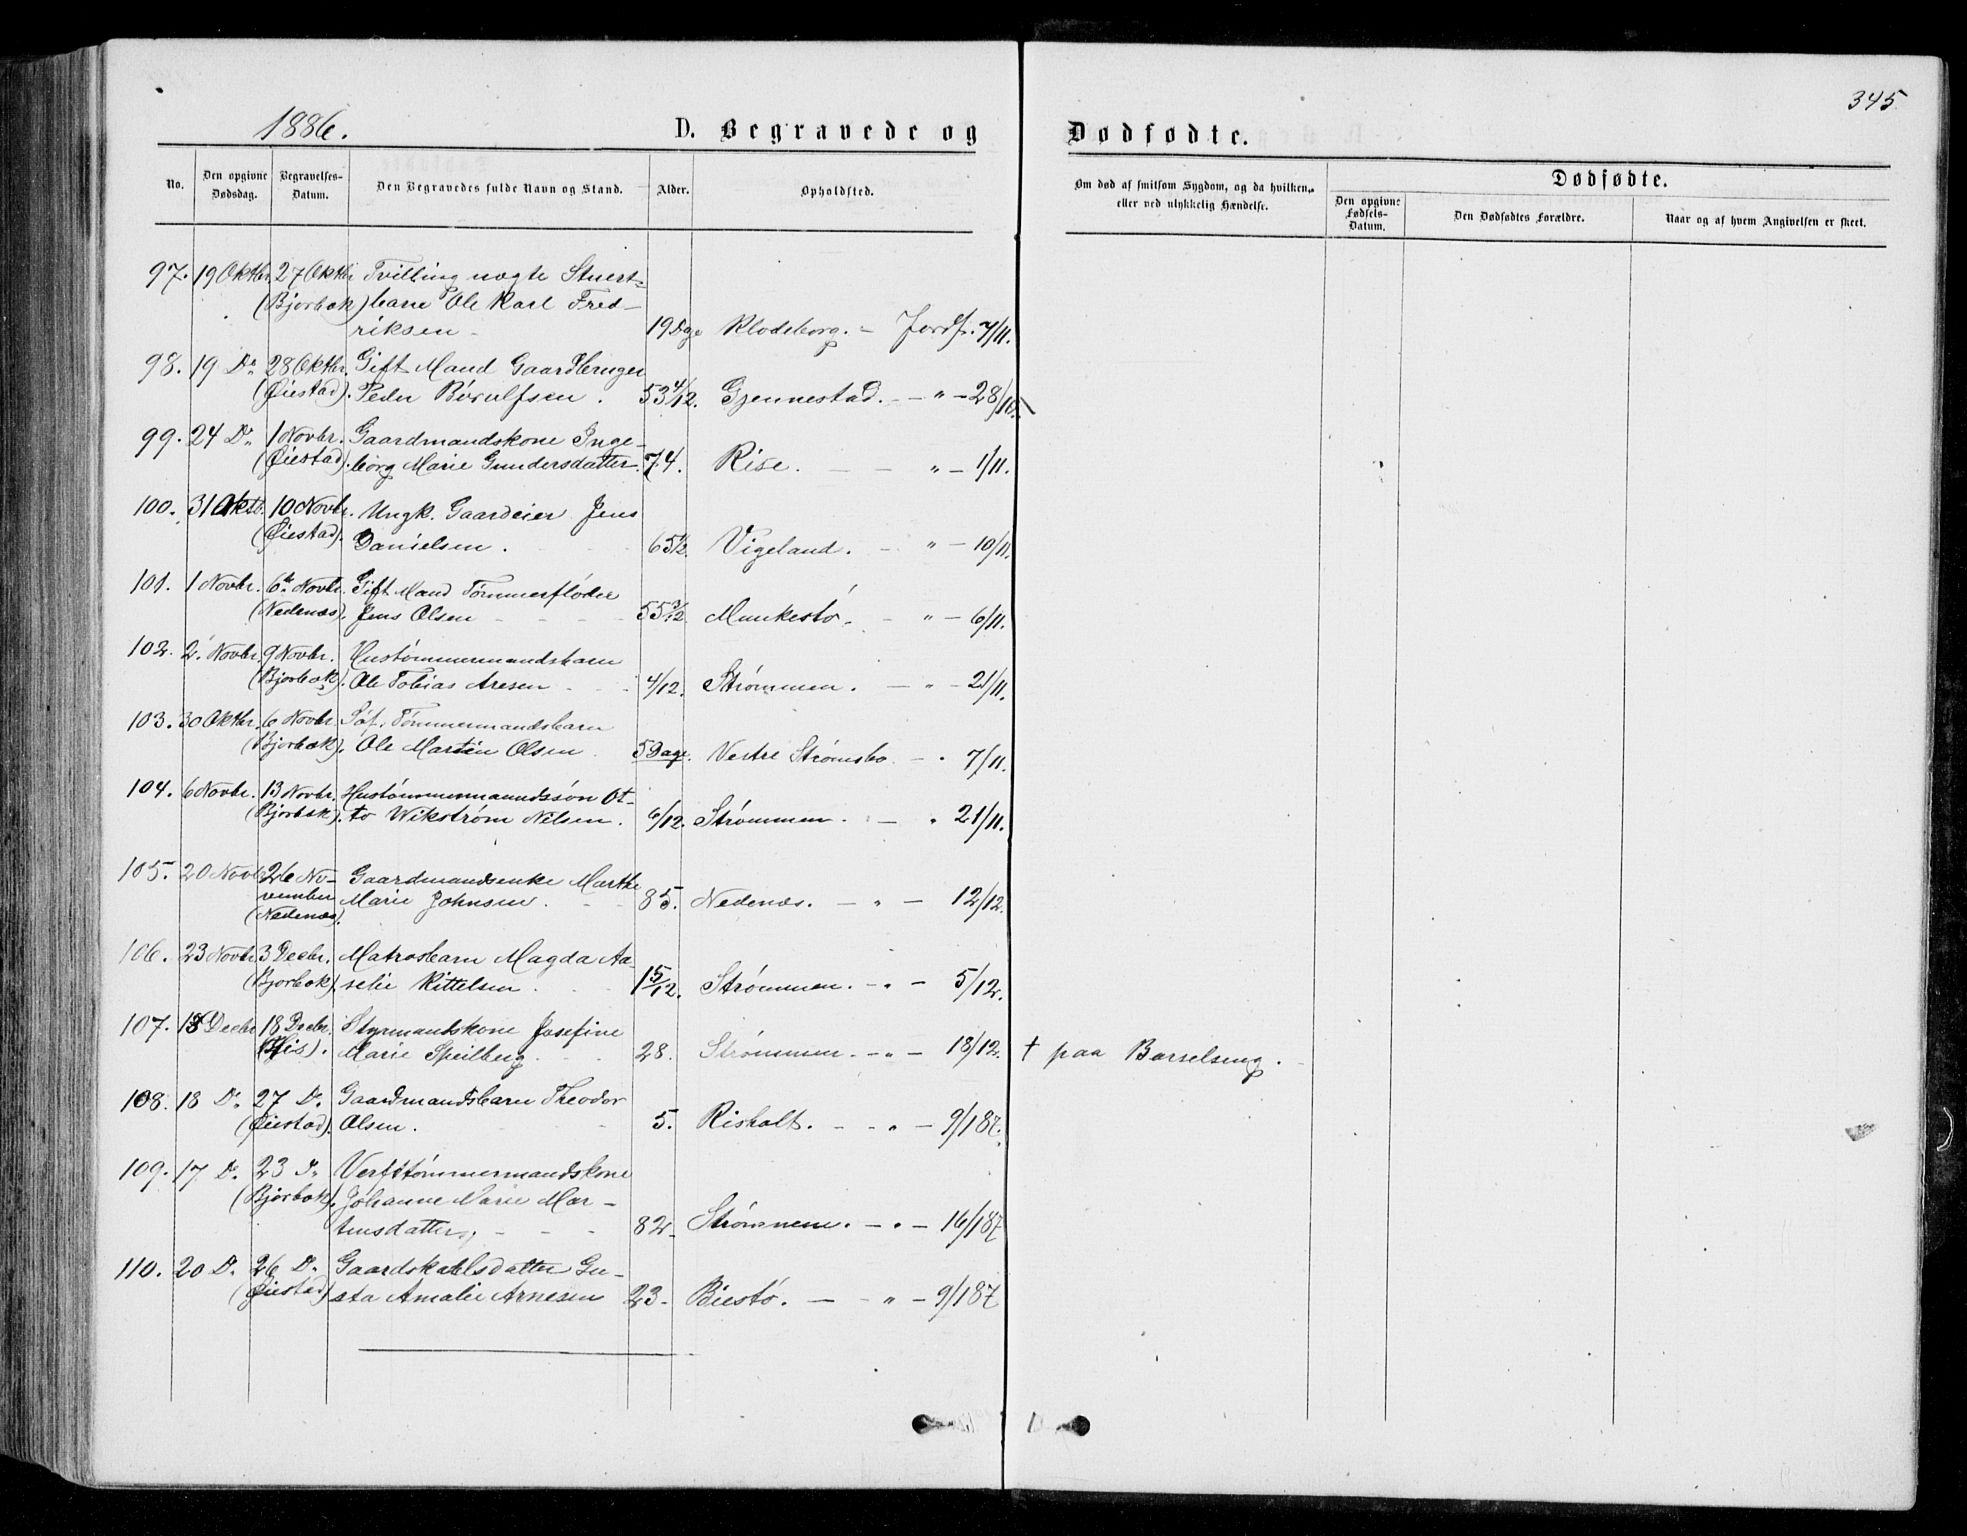 345
1886.
D. Begravede og Dødfødte.
No.
Den opgivne Dødsdag.
Begravelses-Datum.
Den Begravedes fulde Navn og Stand.
Alder.
Opholdsted.
Om død af smitsom Sygdom, og da hvilken, eller ved ulykkelig Hændelse.
Dødfødte.
Den opgivne Fødsels-Datum.
Den Dødfødtes Forældre.
Naar og af hvem Angivelsen er skeet.
97. 19 Oktbr. 27 Oktbr. Tvilling uægte Stuert-
(Bjorbæk) barn Ole Karl Fred-
riksen - 19 Dge Klodeborg. - Jordf. 7/11.
98. 19 Do. 28 Oktbr. Gift Mand Gaardbruger
(Øiestad). Peder Børulfsen. 53 4/12. Gjennestad. - " - 28/10.
99. 24 Do. 1 Novbr. Gaardmandskone Inge-
(Øiestad). borg Marie Gundersdatter. 74. Rise. - " - 1/11.
100. 31 Oktb. 10 Novbr. Ungk. Gaardeier Jens
(Øiestad). Danielsen. 65 1/2. Vigeland. - " - 10/11.
101. 1 Novbr. 6te Novbr. Gift Mand Tømmerfløder
(Nedenæs). Jens Olsen - 55 3/12 Munkestø. - " - 6/11.
102. 2. Novbr. 9 Novbr. Hustømmermandsbarn
(Bjorbæk). Ole Tobias Aresen 4/12. Strømmen. - " - 21/11.
103. 30 Oktbr. 6 Novbr. Søf. Tømmermandsbarn
(Bjorbæk). Ole Martin Olsen. 5 Dage. Vestre Strømsbo. - " 7/11.
104. 6 Novbr. 13 Novbr. Hustømmermandssøn Ot-
(Bjorbæk). to Wikstrøm Nilsen. 6/12. Strømmen. - " 21/11.
105. 20 Novb 26 No- Gaardmandsenke Marthe
vember Marie Johnsen. 85. Nedenæs. - " - 12/12.
(Nedenæs).
106. 23 Novbr. 3 Decbr. Matrosbarn Magda Aa-
(Bjorbæk). selie Kittelsen. 1 5/12. Strømmen. - " - 5/12.
107. 13 Decbr 18 Decbr. Styrmandskone Josefine
(His). Marie Speilberg. 28. Strømmen. - " - 18/12. † paa Barselseng.
108. 18 Do. 27 Do. Gaardmandsbarn Theodor
(Øiestad). Olsen. 5. Risholt. - " - 9/1 87.
109. 17 Do. 23 Do. Verfttømmermandskone
(Bjorbæk). Johanne Marie Mar-
tinsdatter. - 82. Strømmen. - " - 16/1 87
110. 20 Do. 26 Do. Gaardskarlsdatter Gu-
(Øiestad) sta Amalie Arnesen 23. Biestø. - " - 9/1 87